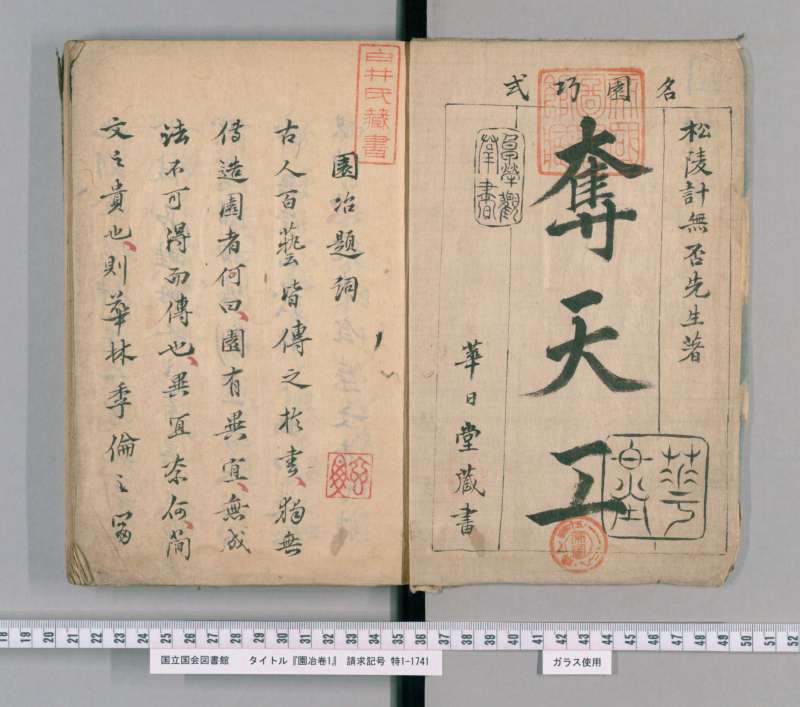 名園巧式
松陵計無否先生著
奪天工
華日堂藏書
白井氏藏書
園冶題詞
古人百藝皆傳之於書、獨無
傳造園者何曰、園有異宜、無成
法不可得而傳也、異宜奈何、簡
文之貴也、則華林季倫之富
18 19 20 21 22 23 24 25 26 27 28 29 30 31 32 33 34 35 36 37 38 39 40 41 42 43 44 45 46 47 48 49 50 51 52
国立国会図書館 タイトル『園冶卷1』 請求記号 特1-1741
ガラス使用